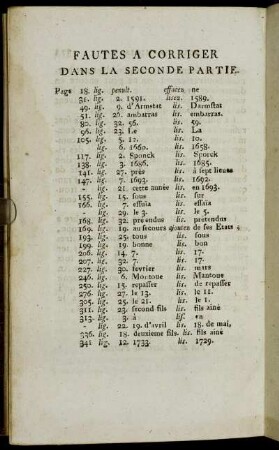 FAUTES A CORRIGER
DANS LA SECONDE PARTIE.
Page 18. lig. penult. effacez ne
31. lig. 2. 1591. lisez. 1589.
49. lig. 9. d'Armstat lis. Darmstat
51. lig. 26. ambarras lis. embarras.
80. lig. 32. 56. lis. 59.
96. lig. 23. Le lis. La
105. lig. 5. 12. lis. 10.
- lig. 6. 1660. lis. 1658.
117. lig. 2. Sponck lis. Sporck
138. lig. 3. 1686. lis. 1685.
141. lig. 27. près lis. à sept lieues
147. lig. 7. 1693. lis. 1692.
- lig. 21. cette année lis. en 1693.
155. lig. 15. sous lis. sur
166. lig. 7. essuia lis. essaïa
- lig. 29. le 3. lis. le 5.
168. lig. 32. prétendus lis. prétendus
169. lig. 19. au secours ajoutez de ses Etats
193. lig. 25. tous lis. sous
199. lig. 19. bonne lis. bon
206. lig. 14. 7. lis. 17.
207. lig. 32. 7. lis. 17.
227. lig. 30. fevrier lis. mars
246. lig. 6. lis. Mantoue
250. lig. 15. repasser lis. de repasser
276. lig. 27. le 13. lis. le 11.
305. lig. 21. le lis. le 1.
311. lig. 23. second fils lis. fils ainé
313. lig. 3. à lis. en
- lig. 22. 19. d'avril lis. 18. de mai,
336. lig. 18. deuxieme fils. lis. fils ainé
341 lig. 12. 1733. lis. 1729.